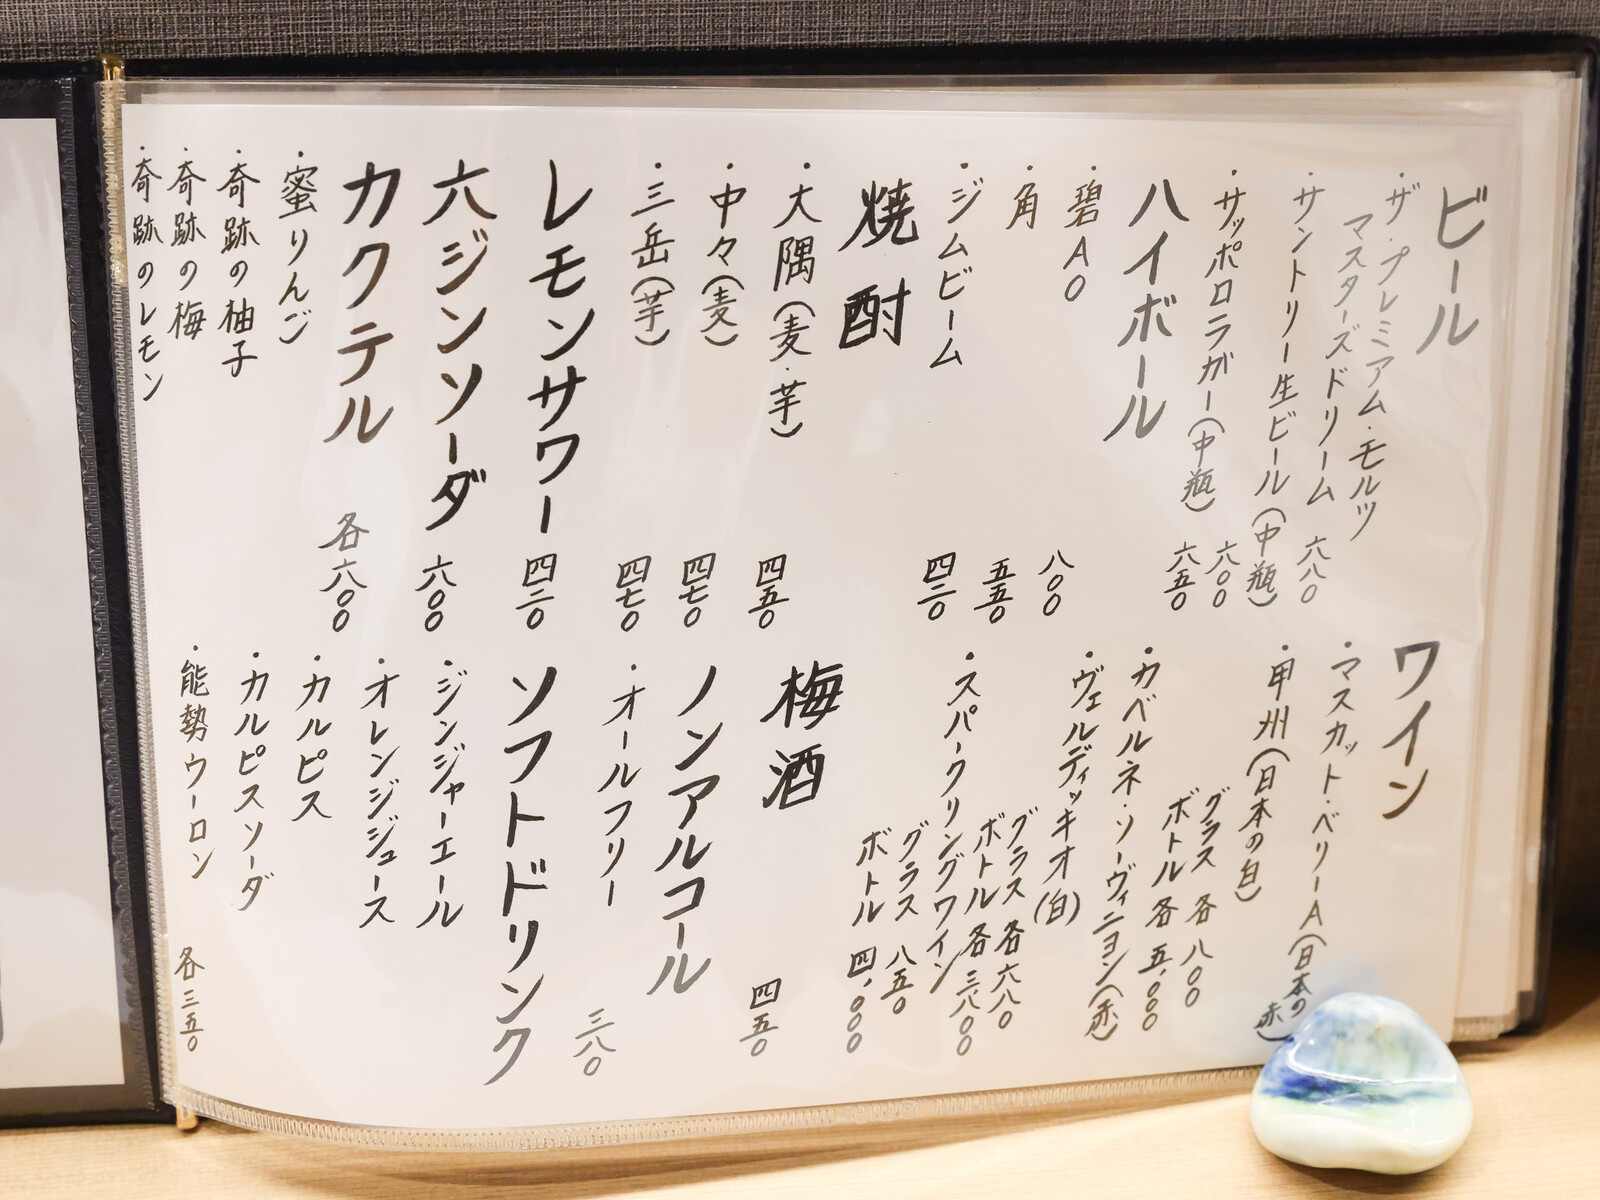 ビール
・ザ・プレミアム・モルツ
マスターズドリーム 六八〇
・サントリー生ビール(中瓶) 六〇〇
・サッポロラガー(中瓶) 六五〇
ハイボール
・碧Ao 八〇〇
・角 五五〇
・ジムビーム 四二〇
焼酎
・大隅(麦・芋) 四五〇
・中々(麦) 四七〇
・三岳(芋) 四七〇
レモンサワー 四二〇
六ジンソーダ 六〇〇
カクテル 各六〇〇
・蜜りんご
・奇跡の柚子
・奇跡の梅
・奇跡のレモン
ワイン
・マスカット・ベリーA(日本の赤)
・甲州(日本の白)
グラス 各 八〇〇
ボトル 各 五.〇〇〇
・カベルネ・ソーヴィニヨン(赤)
・ヴェルディッキオ(白)
グラス 各六八〇
ボトル 各三.八〇〇
・スパークリングワイン
グラス 八五〇
ボトル 四.〇〇〇
梅酒 四五〇
ノンアルコール
・オールフリー 三八〇
ソフトドリンク
・ジンジャーエール
・オレンジジュース
・カルピス
・カルピスソーダ
・能勢ウーロン 各三五〇